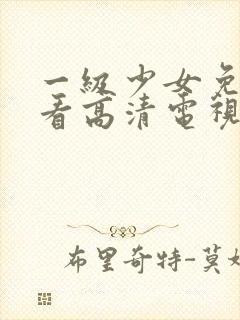 一級少女免
看高清電視
布里奇特-莫